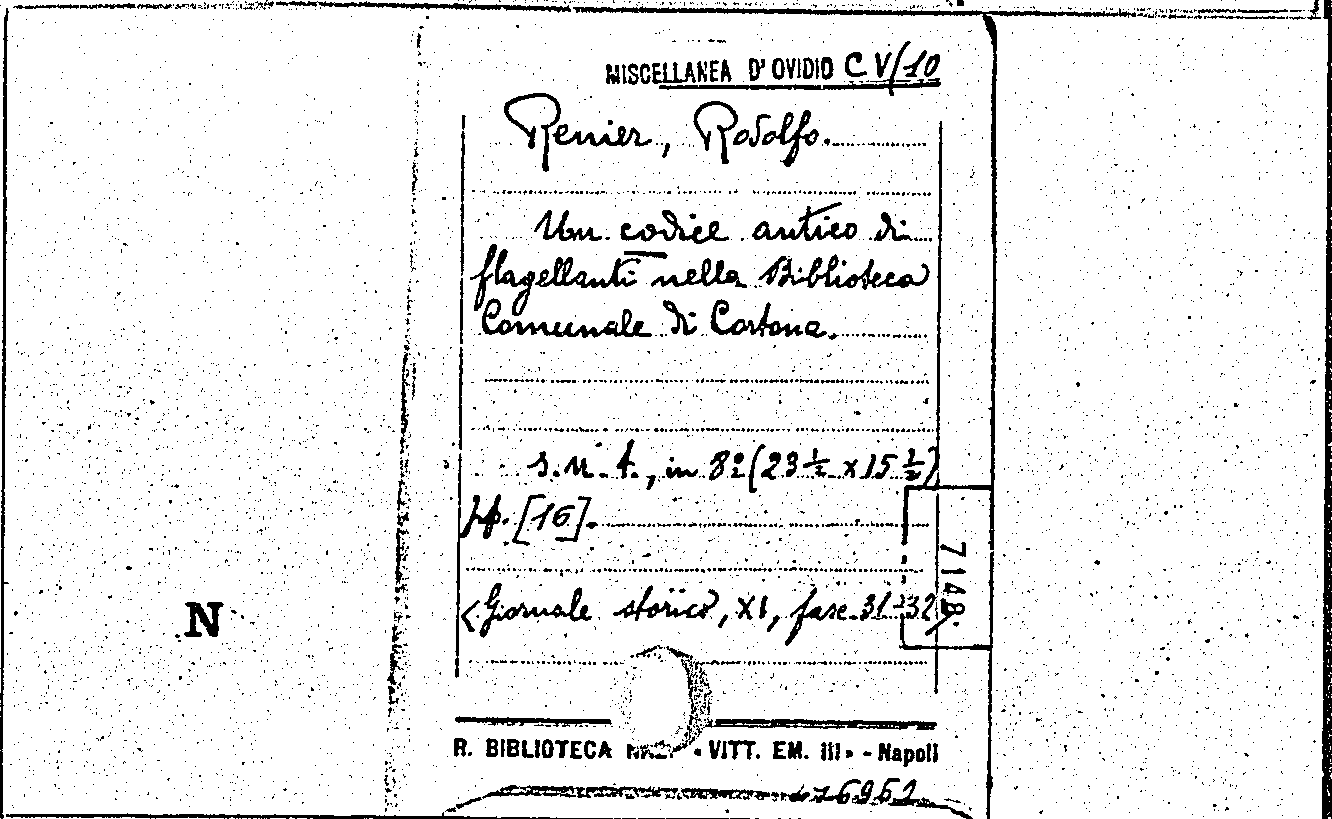 MISCELLANEA D'OVIDIO C V/10
Renier, Rodolfo.
Un codice antico di
flagellanti nella Biblioteca
Comunale di Cortona.
s. n. t., in 8º (23 ½ x 15 ½)
pp. [16].
<Giornale storico, XI, fasc. 31-32>
7148.
N
R. BIBLIOTECA NAZ. « VITT. EM. III » - Napoli